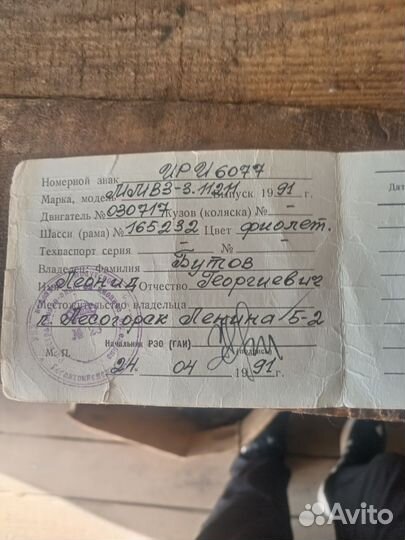 Номерной знак ИРИ 6077
Марка, модель ММВЗ-3.11211 Выпуск 1991 г.
Двигатель № 030717 Кузов (коляска) № –
Шасси (рама) № 165232 Цвет фиолет.
Техпаспорт серия – № –
Владелец Фамилия Бутов
Имя Леонид Отчество Георгиевич
Местожительство владельца
п. Лесогорск Ленина 5-2
Начальник РЭО (ГАИ)
(подпись)
М. П. 24. 04 1991 г.
Дат
Avito